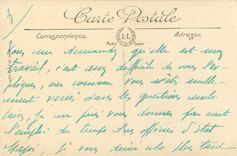 Carte Postale
Correspondance
Adresse
Vous me demandez quelle est mon
travail, c'est assez difficile de vous l'ex-
pliquer, car comme vous n'êtes nulle-
ment versés dans les questions mili-
taires, je ne puis vous donner par écrit
l'emploi du temps d'un officier d'Etat
Major je vous dirai cela plus tard